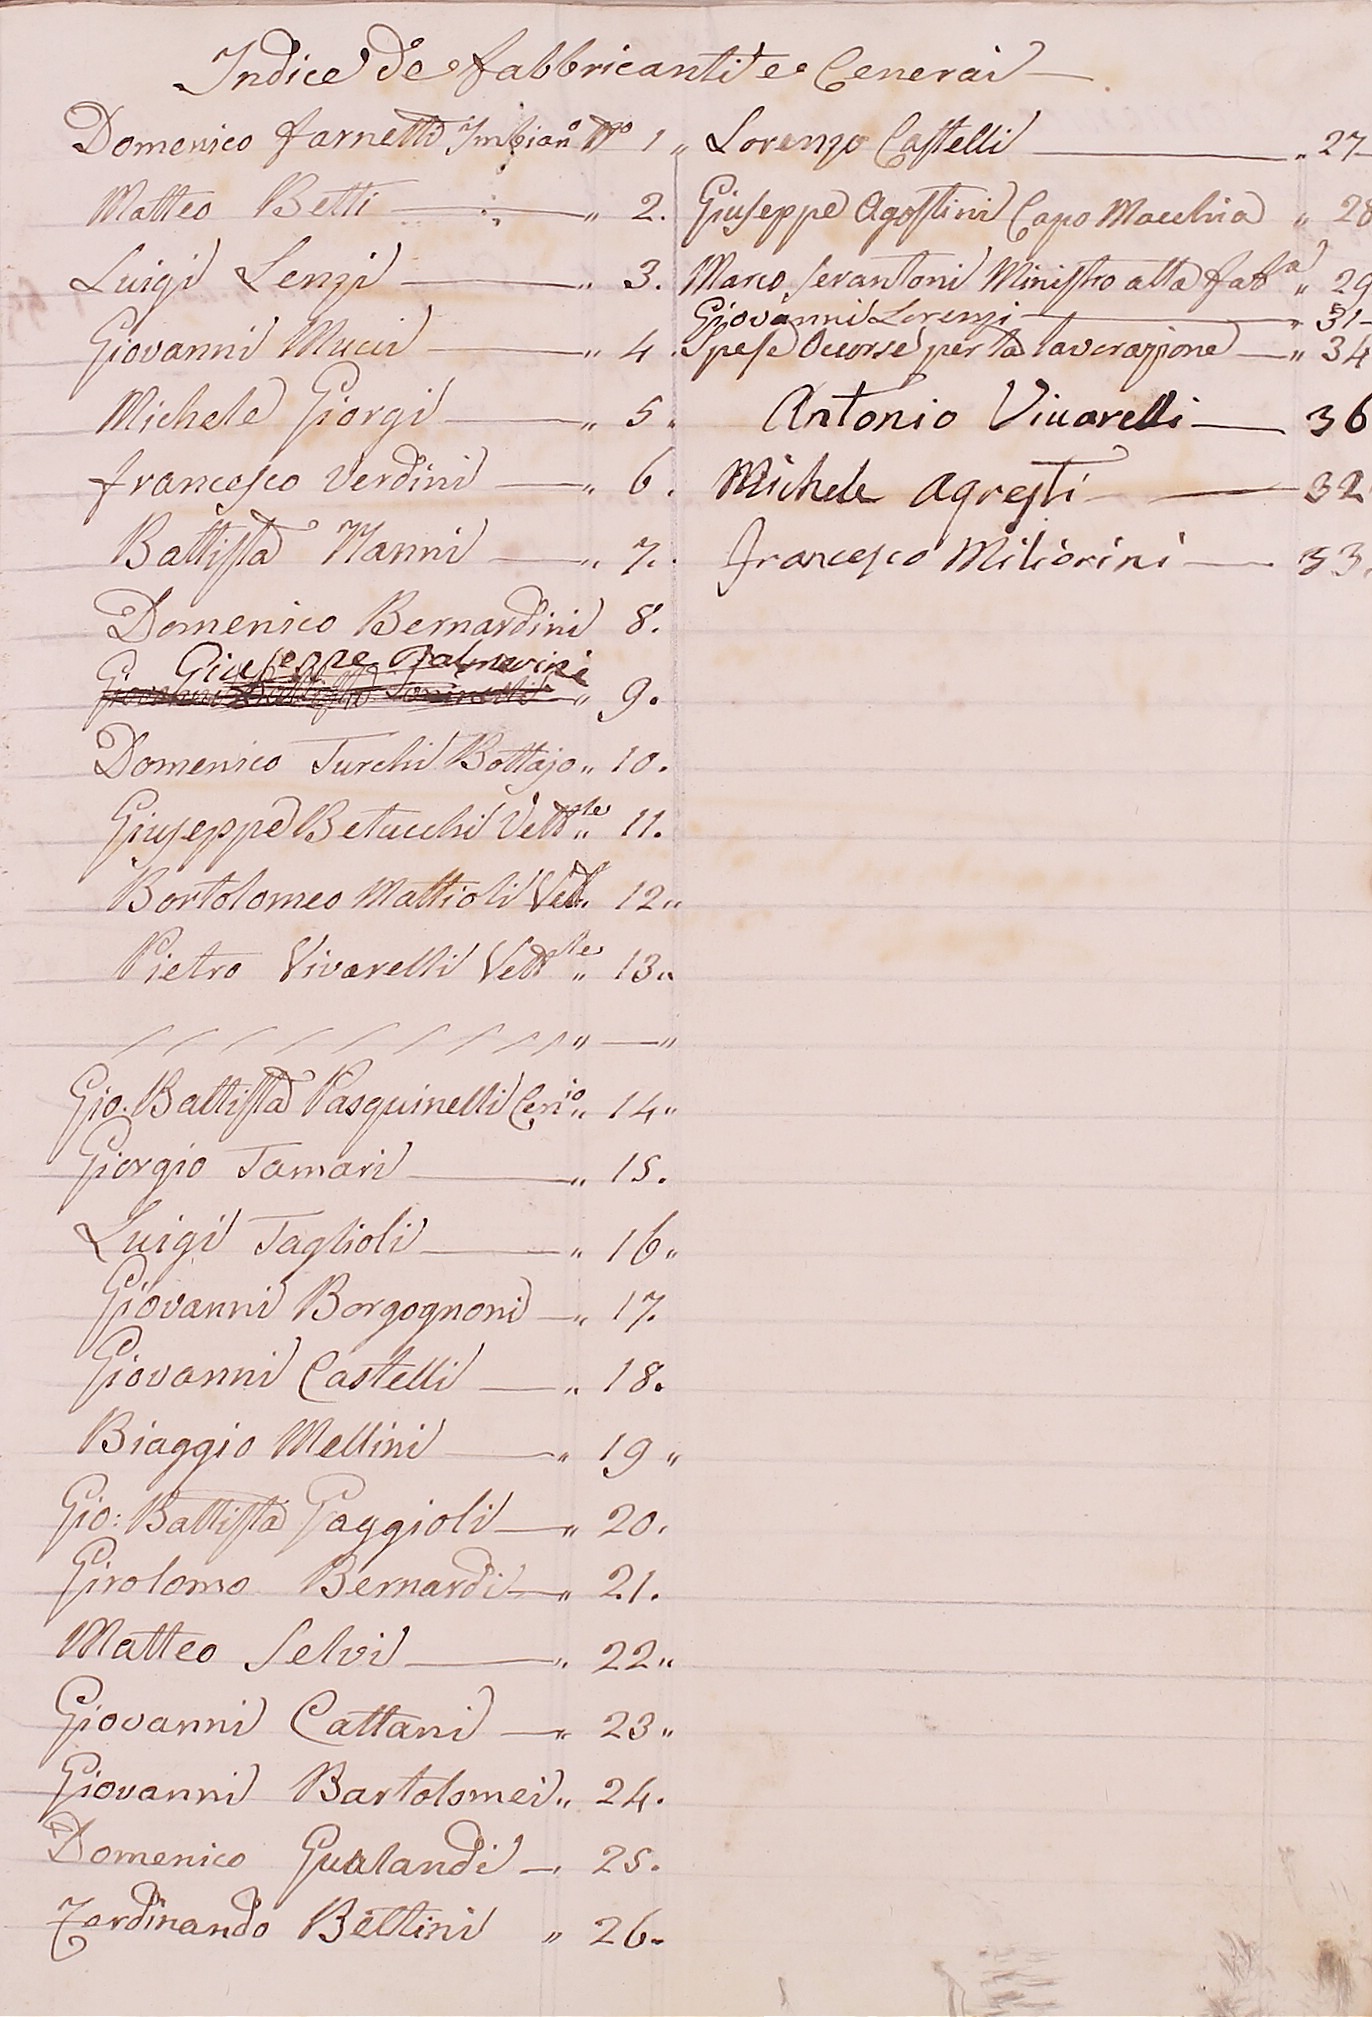 Indice de fabbricanti e Cenerai
Domenico Farnetti Imbian.º N.º 1 "
Matteo Betti — " 2.
Luigi Lenzi — " 3.
Giovanni Mucci — " 4.
Michele Giorgi — " 5 "
Francesco Verdini — " 6.
Battista Nanni — " 7.
Domenico Bernardini 8.
Giuseppe Palmerini
" 9.
Domenico Turchi Bottajo " 10.
Giuseppe Betucchi Vett.le " 11.
Bortolomeo Mattioli Vett. " 12 "
Pietro Vivarelli Vett.le " 13 "
" — "
Gio. Battista Pasquinelli Cen.io " 14 "
Giorgio Tamari — " 15.
Luigi Taglioli — " 16 "
Giovanni Borgognoni — " 17.
Giovanni Castelli — " 18.
Biaggio Mellini — " 19 "
Gio: Battista Gaggioli — " 20.
Girolomo Bernardi — " 21.
Matteo Selvi — " 22 "
Giovanni Cattani — " 23 "
Giovanni Bartolomei " 24.
Domenico Gualandi — " 25.
Ferdinando Bettini " 26 "
Lorenzo Castelli — " 27
Giuseppe Agostini Capo Macchia " 28
Marco Serantoni Ministro alla fab.a " 29
Giovanni Lorenzi — " 31
Spese Occorse per la lavorazione — " 34
Antonio Vivarelli — 36
Michele Agresti — 32
Francesco Miliorini — 33.